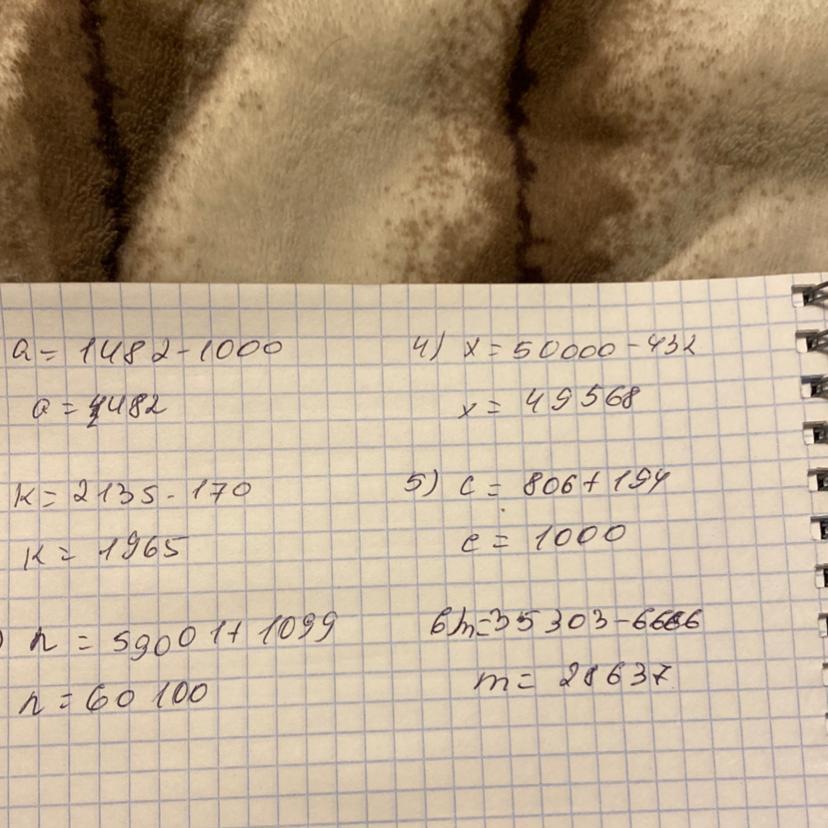 a = 1482 - 1000
a = 1482
к = 2135 - 170
к = 1965
) n = 59001 + 1099
n = 60 100
4) x = 50000 - 432
x = 49568
5) c = 806 + 194
c = 1000
6) m = 35303 - 6666
m = 28637